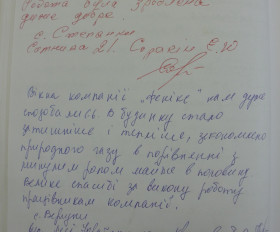 Робота була зроблена
дуже добре.
с. Степанки
Сорокін Є.Ю
Вікна компанії „ нам дуже
сподобались В будинку стало
затишніше і тепліше, зекономлено
природного газу в порівнянні з
минулим роком майже в половину
велике спасибі за виконану роботу
працівникам компанії.
с. Вергуни